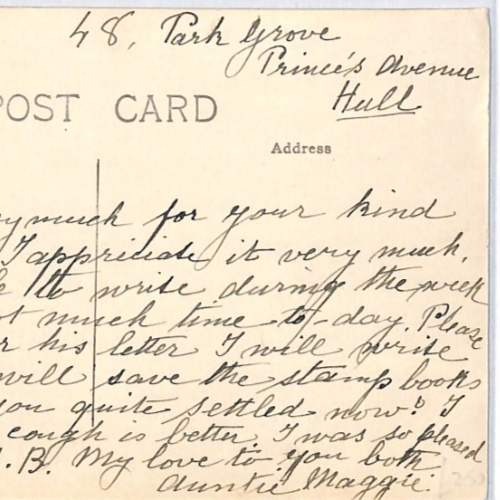 48, Park Grove
Prince's Avenue
Hull
POST CARD
Address
much for your kind
I appriciate it very much.
to write during the week
much time to-day. Please
his letter I will write
will save the stamp books
you quite settled now? I
cough is better. I was so pleased
B. My love to you both
Auntie Maggie.